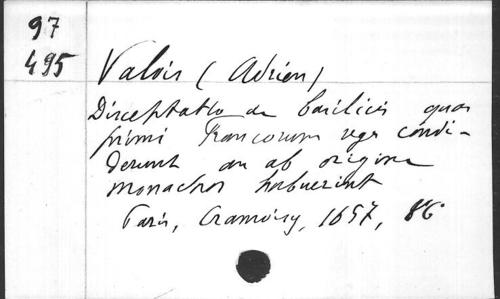 97
495
Valois (Adrien)
Disceptatio de basilicis quas
primi Francorum reges condi-
derunt an ab origine
monachos habuerint
Paris, Cramoisy, 1657, 8°